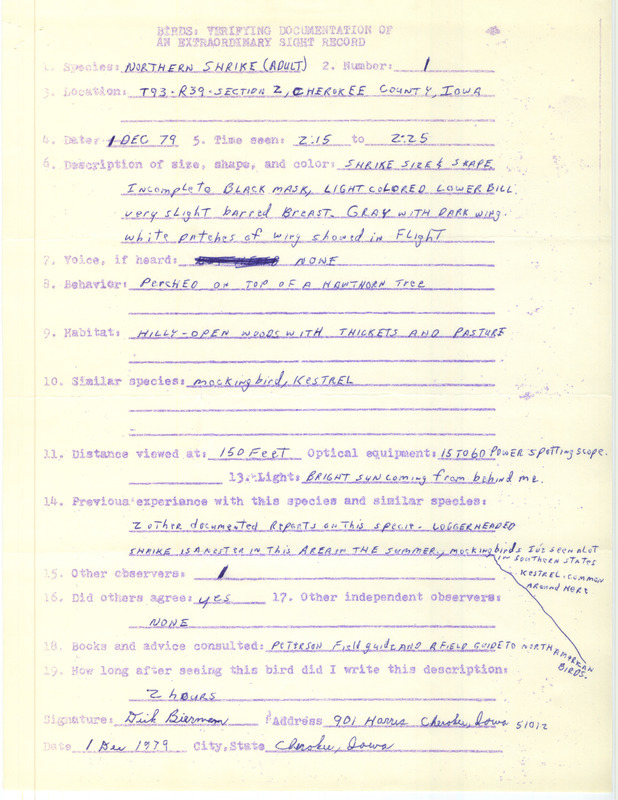 BIRDS: VERIFYING DOCUMENTATION OF
AN EXTRAORDINARY SIGHT RECORD
1. Species: NORTHERN SHRIKE (ADULT) 2. Number: 1
3. Location: T93-R39-SECTION 2, CHEROKEE COUNTY, IOWA
4. Date: 1 DEC 79 5. Time seen: 2:15 to 2:25
6. Description of size, shape, and color: SHRIKE SIZE & SHAPE
Incomplete BLACK MASK, LIGHT COLORED LOWER BILL.
very slight barred Breast. GRAY WITH DARK wing.
white patches of wing showed in FLIGHT
7. Voice, if heard: NONE
8. Behavior: PERCHED ON TOP OF A HAWTHORN Tree
9. Habitat: HILLY-OPEN WOODS WITH THICKETS AND PASTURE
10. Similar species: mockingbird, KESTREL
11. Distance viewed at: 150 FeeT Optical equipment: 15 TO 60 POWER spotting scope.
13. Light: BRIGHT SUN coming from behind me.
14. Previous experiance with this species and similar species:
2 other documented Reports on this specie. LOGGERHEADED
SHRIKE IS A NESTER IN THIS AREA IN THE SUMMER, mockingbirds I've seen alot
in SOUTHERN STATES
KESTREL-COMMON
AROUND HERE
15. Other observers: 1
16. Did others agree: yes 17. Other independent observers:
NONE
18. Books and advice consulted: PETERSON Field guide AND A FIELD GUIDE TO NORTH AMERICAN
BIRDS.
19. How long after seeing this bird did I write this description:
2 hours
Signature: Dick Bierman Address 901 Harris Cherokee, Iowa 51012
Date 1 Dec 1979 City, State Cherokee, Iowa